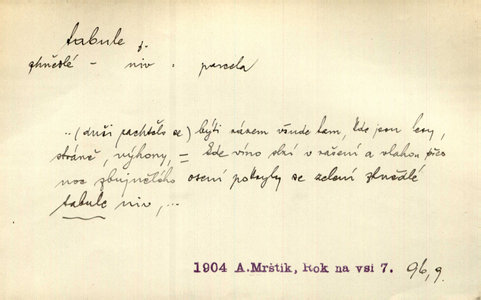 tabule f.
zhnědlé – niv · parcela
..(duši zachtělo se) býti rázem všude tam, kde jsou lesy,
stráně, výhony, = kde víno slzí v rašení a vlahou přes
noc zbujnělého osení pokryly se zelení zhnědlé
tabule niv,...
1904 A.Mrštík, Rok na vsi 7. 96,9.